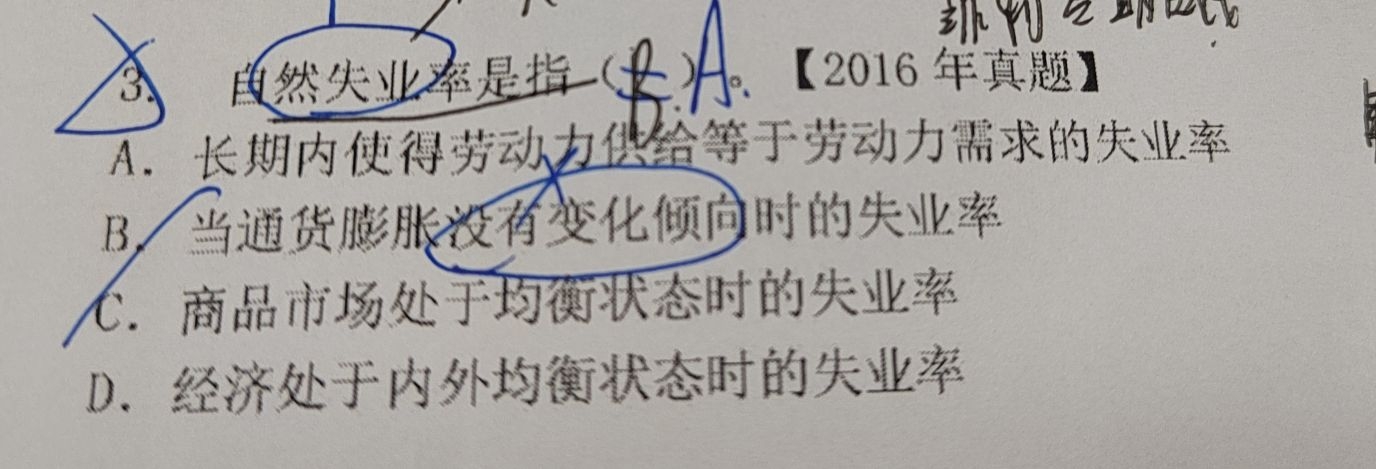 3. 自然失业率是指（B）A。【2016 年真题】
A. 长期内使得劳动力供给等于劳动力需求的失业率
B. 当通货膨胀没有变化倾向时的失业率
C. 商品市场处于均衡状态时的失业率
D. 经济处于内外均衡状态时的失业率